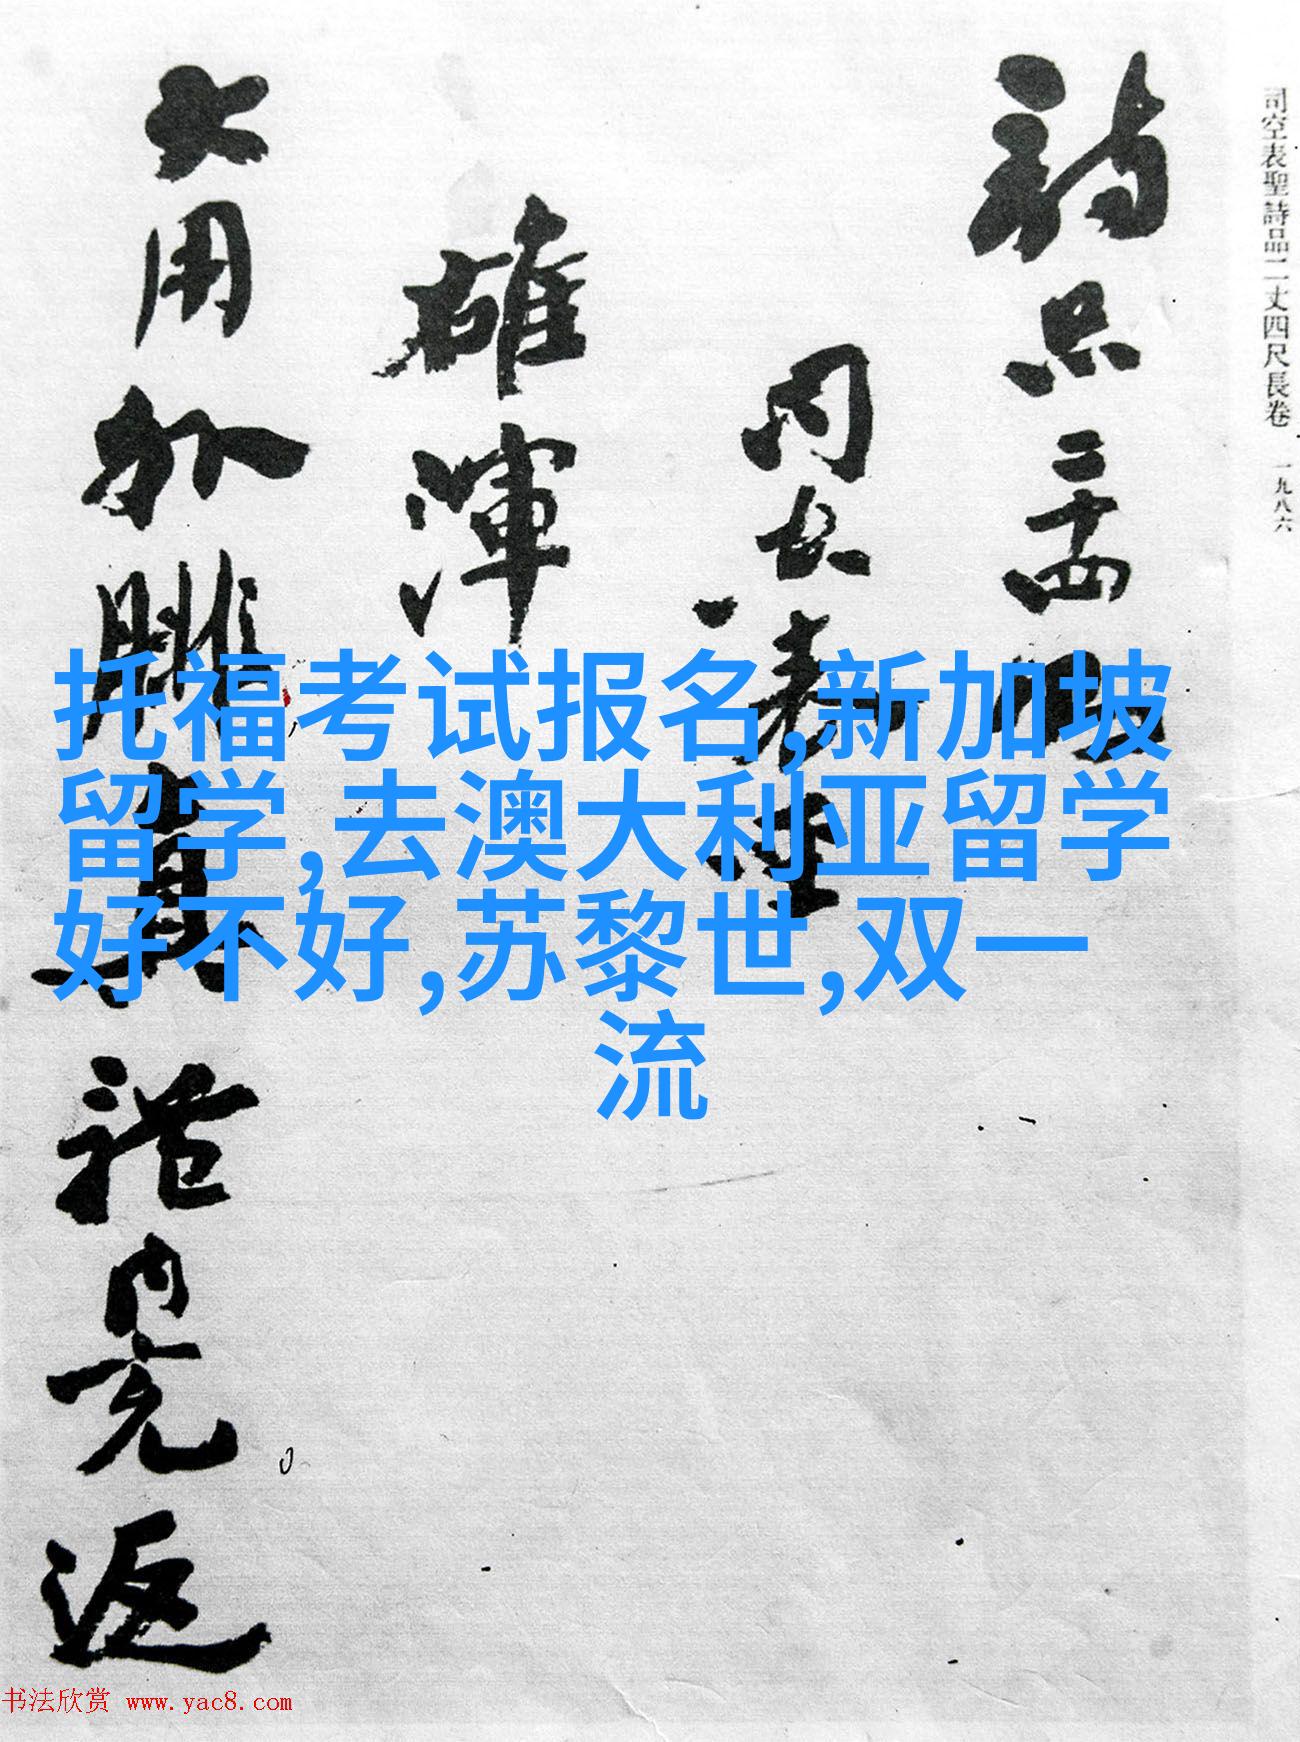 司空表聖詩品二丈四尺長卷 一九八六
詩品二十四則
司空表聖
雄渾
大用外腓真體内充返
托福考试报名,新加坡
留学,去澳大利亚留学
好不好,苏黎世,双一
流
书法欣赏 www.yac8.com